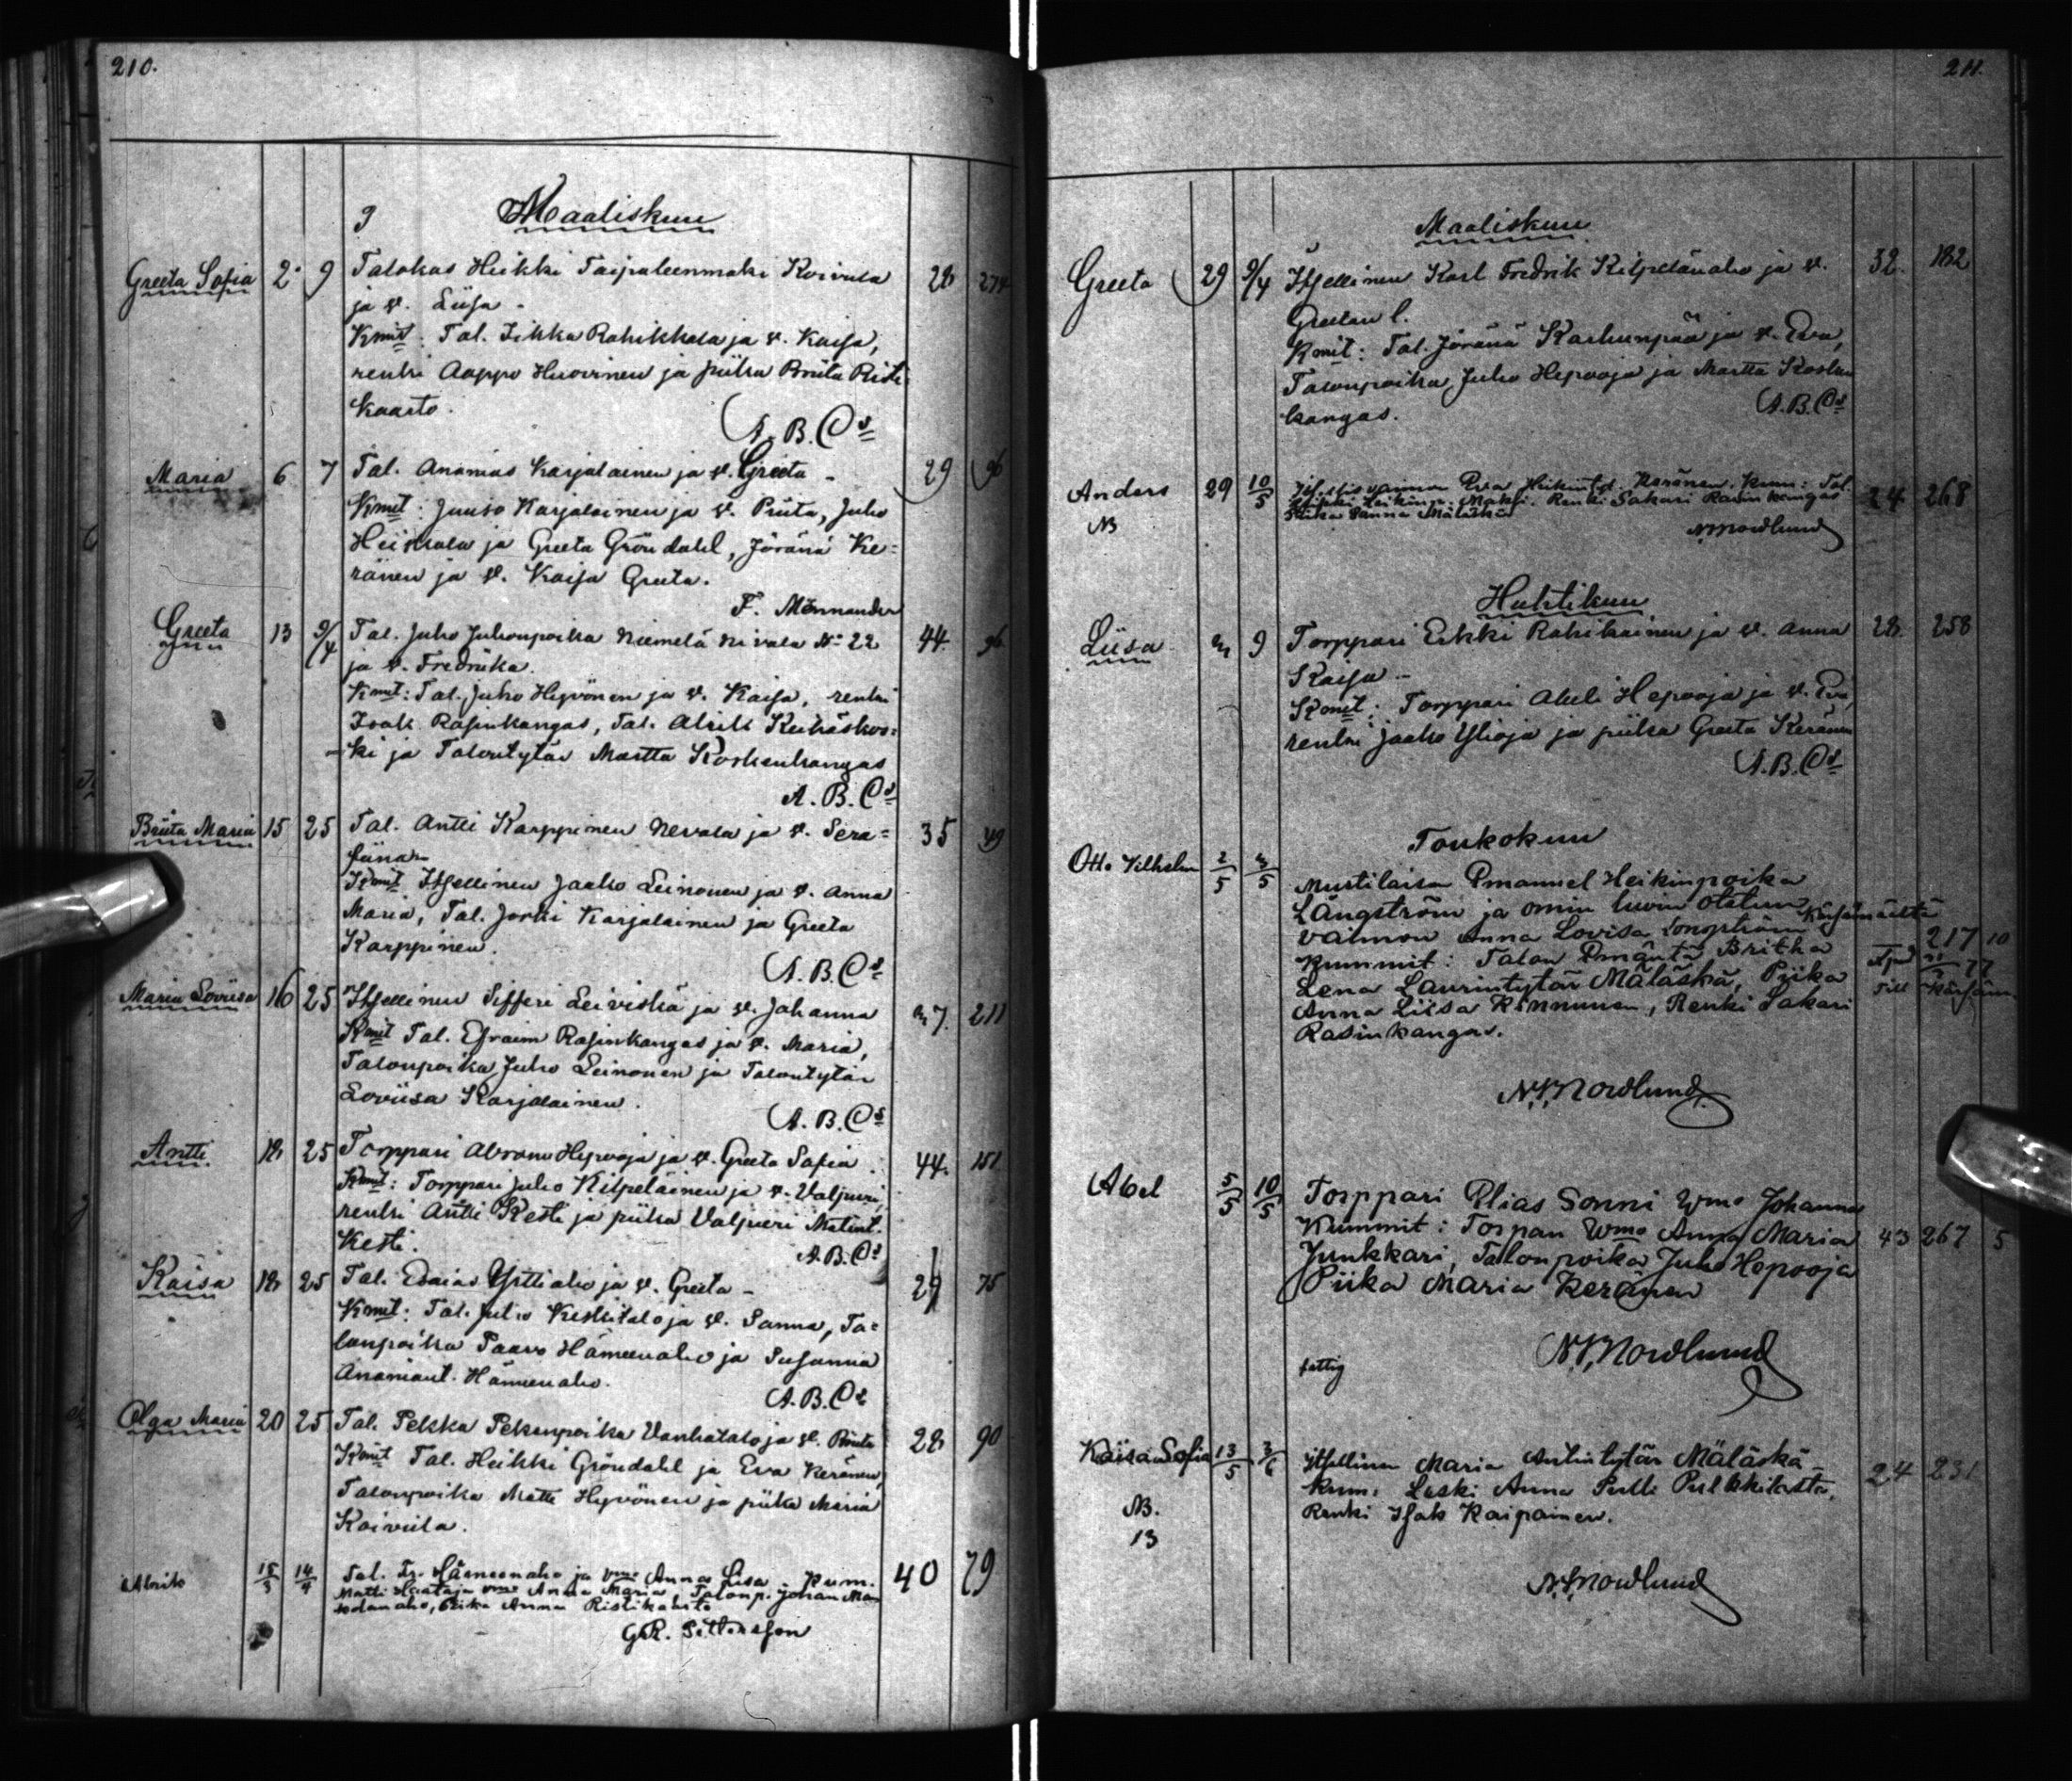 210.
Maaliskuu
Greeta Sofia 2. 9 Talokas Heikki Taipaleenmäki Koivula 28 274
ja v. Liisa -
Kmit: Tal. Iikka Rahikkala ja v. Kaisa,
renki Aappo Huovinen ja piika Priita Risti
kaarto.
A. B. Cs
Maria 6 7 Tal. Ananias Karjalainen ja v. Greeta - 29 96
Kmit: Juuso Karjalainen ja v. Priita, Juho
Heiskala ja Greeta Gröndahl, Jöränä Ke=
ränen ja v. Kaisa Greeta.
F. Mennander
Greeta 13 9/4 Tal. Juho Juhonpoika Niemelä Nivala No 22 44. 96
ja v. Fredrika.
Kmit: Tal. Juho Hyvönen ja v. Kaisa, renki
Isak Rasinkangas, Tal. Abel Keihäskos=
ki ja Talontytär Martta Koskenkangas
A. B. Cs
Briita Maria 15 25 Tal. Antti Karppinen Nevala ja v. Sera= 35 49
fiina -
Kmit Itsellinen Jaako Leinonen ja v. Anna
Maria, Tal. Jorki Karjalainen ja Greeta
Karppinen.
A. B. Cs
Maria Loviisa 16 25 Itsellinen Sifferi Leiviskä ja v. Johanna 37. 211
Kmit Tal. Efraim Rasinkangas ja v. Maria,
Talonpoika Juho Leinonen ja Talontytär
Loviisa Karjalainen.
A. B. Cs
Antti 18 25 Torppari Abram Hepooja ja v. Greeta Safia. 44. 151
Kmit: Torppari Juho Kilpeläinen ja v. Valpuri,
renki Antti Kesti ja piika Valpuri Matint.
Kesti.
A. B. Cs
Kaisa 18 25 Tal. Esaias Yrttiaho ja v. Greeta - 29 75
Kmit: Tal. Juho Keskitalo ja v. Sanna, Ta=
lonpoika Paavo Hämeenaho ja Susanna
Ananiant. Hämeenaho.
A. B. Cs
Olga Maria 20 25 Tal. Pekka Pekanpoika Vanhatalo ja v. Briita 28 90
Kmit Tal. Heikki Gröndahl ja Eva Keränen,
Talonpoika Matti Hyvönen ja piika Maria
Koivula.
15/3 14/4 Tal. Fr. Hämeenaho ja vmo Anna Lisa. Kum. 40 79
Matti Hautaja vmo Anna Maria, Talonp. Johan
aho, Piika Anna Ristikaarto
211.
Maaliskuu
Greeta 29 9/4 Itsellinen Karl Fredrik Kilpelänaho ja v. 32. 182
Greetan l.
Kmit: Tal. Jöränä Karhunpää ja v. Eva,
Talonpoika Juho Hepooja ja Martta Kosken
kangas.
A. B. Cs
Anders 29 10/5 vaimon Eva Heikint. Keränen. Kum: Tal. 24 268
Renki Sakari Rasinkangas
NB Piika Sanna Mäläskä
N Nordlund
Huhtikuu
Liisa 3 9 Torppari Erkki Rahikainen ja v. Anna 28. 258
Kaisa -
Kmit: Torppari Abeli Hepooja ja v. Eva,
renki Jaako Ylioja ja piika Greeta Keränen
A. B. Cs
Toukokuu
Otto Vilhelm 2/5 3/5 Mustilaisen Emanuel Heikinpoika
Längström ja omin luvin otetun
vaimon Anna Lovisa Longström Kärsämäeltä
Kummit: Talon Emäntä Britha 217 10
Lena Laurintytär Mäläskä, Piika 77
Anna Liisa Kinnunen, Renki Sakari till Kärsäm.
Rasinkangas.
N Nordlund
Abel 5/5 10/5 Torppari Elias Sonni Wmo Johanna
Kummit: Torpan Wmo Anna Maria 43 267 5
Junkkari, Talonpoika Juho Hepooja
Piika Maria Keränen
N Nordlund
fattig
Kaisa Sofia 13/5 3/6 Itsellinen Maria Antintytär Mäläskä - 24 231
Kum: Leski Anna Pulli Pulkkilasta,
NB. Renki Isak Kaipainen.
13
N Nordlund